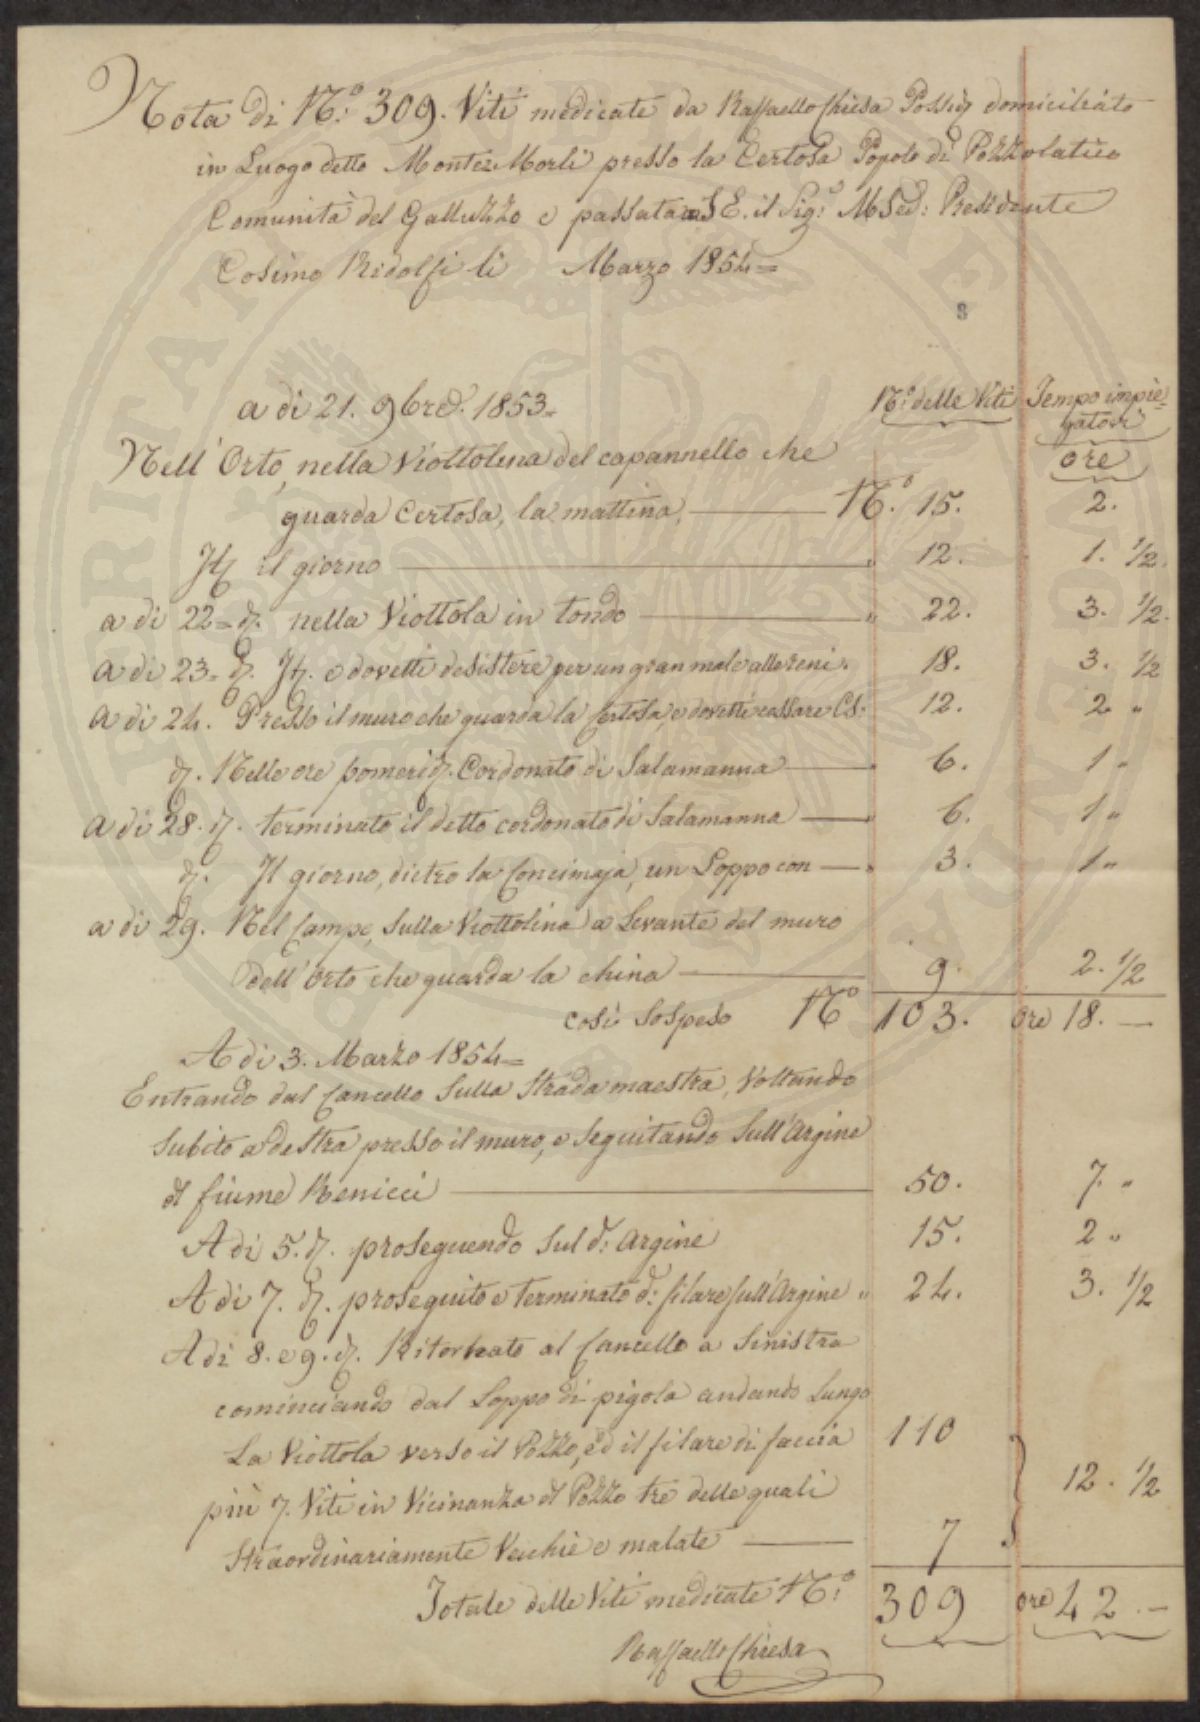 Nota di N.º 309. Viti medicate da Raffaello Chiesa Possid.e domiciliato
in Luogo detto Monte Morli presso la Certosa Popolo di Pozzolatico
Comunità del Galluzzo e passata a S E. il Sig.º M Sed: Presidente
Cosimo Ridolfi li Marzo 1854=
8
a di 21. 9bre. 1853=
N.º delle Viti Tempo impie=
gatovi
ore
Nell' Orto, nella Viottolina del capannello che
guarda Certosa, la mattina, N.º 15. 2.
It. il giorno " 12. 1. 1/2.
a di 22= d. nella Viottola in tondo " 22. 3. 1/2.
a di 23= d. It. e dovetti desistere per un gran male alle reni. 18. 3. 1/2
a di 24. Presso il muro che guarda la Certosa, e dovetti cessare C.S: 12. 2 "
d. Nelle ore pomerid. Cordonato di Salamanna " 6. 1 "
a di 28. d. terminato il detto cordonato di Salamanna " 6. 1 "
d. Il giorno, dietro la Concimaja, un Loppo con " 3. 1 "
a di 29. Nel Campo, Sulla Viottolina a Levante del muro
dell' Orto che guarda la china 9. 2. 1/2
così sospeso N.º 103. ore 18. —
A di 3. Marzo 1854=
Entrando dal Cancello Sulla Strada maestra, Voltando
Subito a destra presso il muro, e Seguitando Sull' Argine
d fiume Renicci 50. 7. "
A di 5. d. proseguendo Sul d: Argine 15. 2 "
A di 7. d. proseguito e terminato d: filare Sull' Argine " 24. 3. 1/2
A di 8. e 9. d. Ritornato al Cancello a Sinistra
cominciando dal Loppo di pigola andando Lungo
La Viottola verso il Pozzo, ed il filare di faccia 110
più 7. Viti in Vicinanza d Pozzo tre delle quali 12. 1/2
Straordinariamente Vecchie e malate 7
Totale delle Viti medicate N.º 309 ore 42. —
Raffaello Chiesa